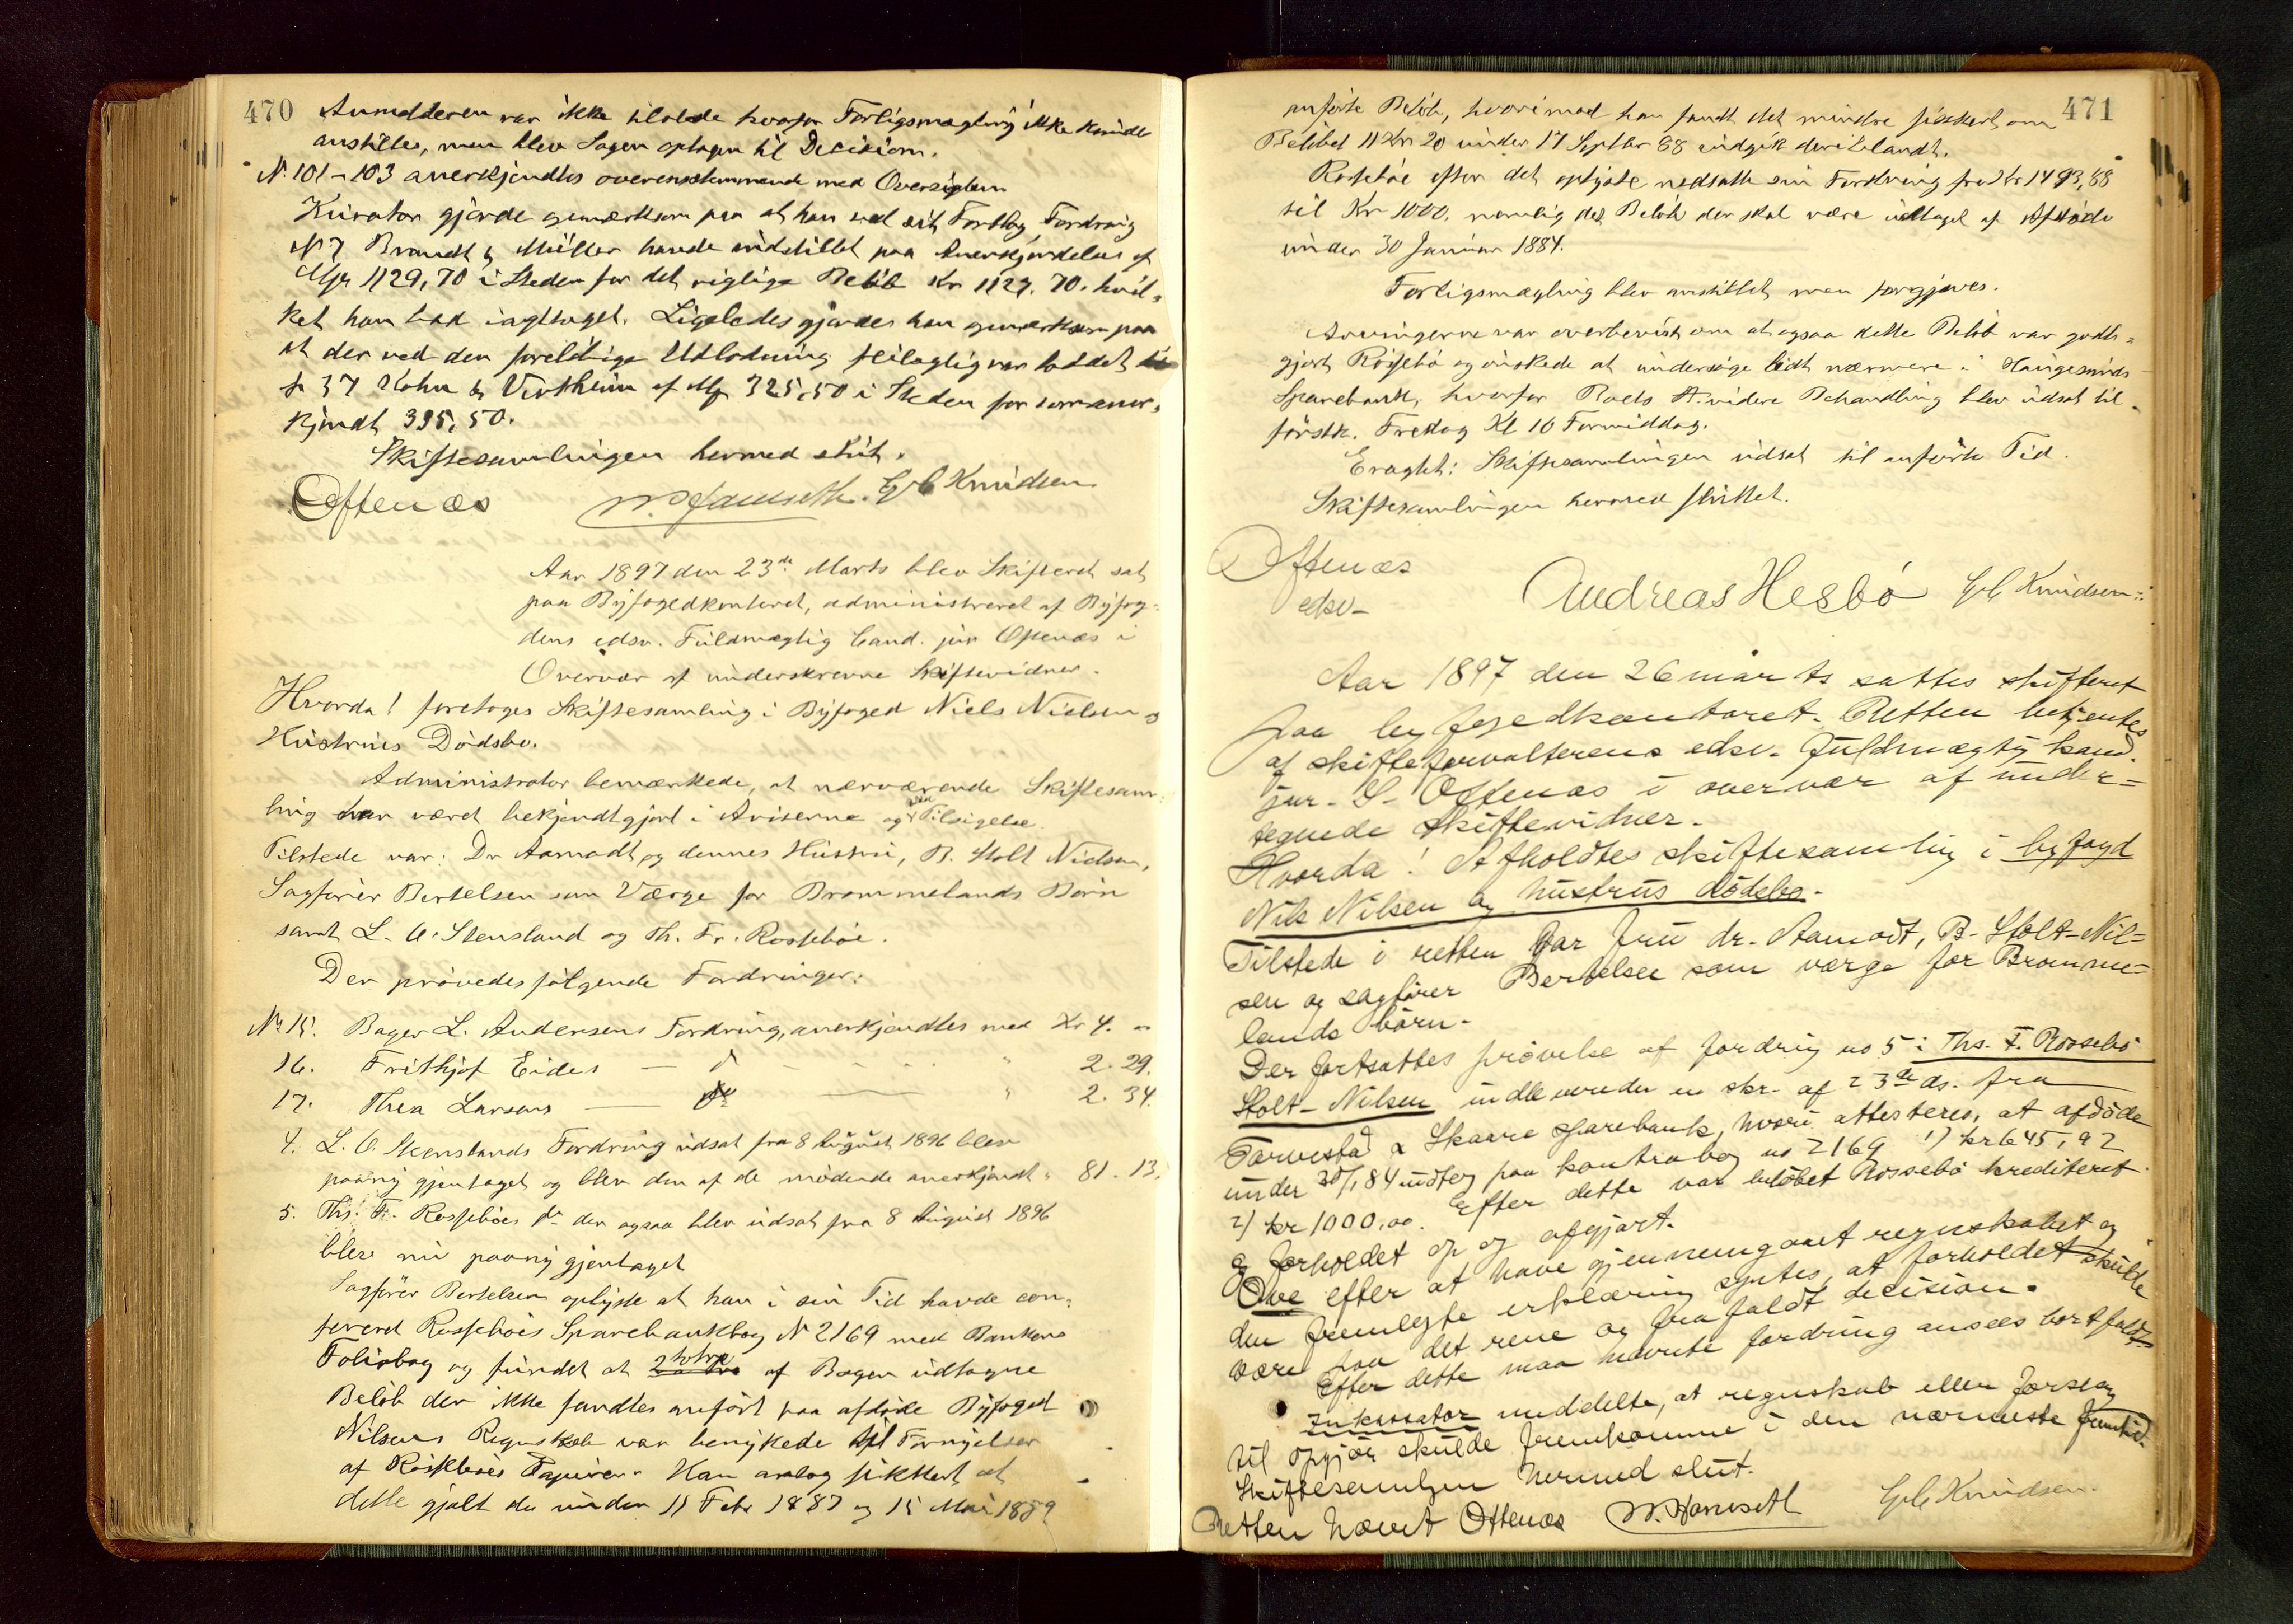 470
Anmelderen var ikke tilstede hvorfor Forligsmægling ikke kunde
anstilles, men blev Sagen optagen til Decision.
N. 101-103 anerkjendtes overensstemmende med Oversigten
Kurator gjorde opmærksom paa at han ved sit Forslag Fordring
N 7 Brandt & Müller havde indstillet paa Anerkjendelse af
1129,70 i Steden for det rigtige Beløb Kr 1127.70. hvil-
ket han bad iagttaget. Ligeledes gjordes han opmærksom paa
at der ved den foreløbige Udlodning feilagtig var loddet
37 Kohn & Virtheim af 325,50 i Steden for som aner-
kjendt 395,50.
Skiftesamlingen hermed slut.
Oftenæs W. Jamseth. G C Knudsen
Aar 1897 den 23de Marts blev Skifteret sat
paa Byfogedkontoret, administreret af Byfog-
dens edsv. Fuldmægtig Cand. jur Oftenæs i
Overvær af underskrevne Skiftevidner.
Hvorda! foretoges Skiftesamling i Byfoged Niels Nielsen &
Hustrues Dødsbo.
Administrator bemærkede, at nærværende Skiftesam-
ling har været bekjendtgjort i Aviserne og ved Tilsigelse.
Tilstede var: Dr Aamodt og dennes Hustru, B. Stolt Nielsen,
Sagfører Bertelsen som Værge for Brommelands Børn
samt L. O. Stensland og Th. Fr. Rossebøe.
Der prøvedes følgende Fordringer:
No 15. Bager L. Andersens Fordring, anerkjendtes med Kr 4. "
16. Frithjof Eides — d " 2.29.
17. Thea Larsens — do — " 2.34.
4. L. O. Stenslands Fordring udsat fra 8 August 1896 blev
paany gjentaget og blev den af de mødende anerkjendt " 81.13.
5. Ths. F. Rossebøes do der ogsaa blev udsat fra 8 August 1896
blev nu paany gjentaget
Sagfører Bertelsen oplyste at han i sin Tid havde con-
fereret Rossebøes Sparebankbog N 2169 med Bankens
Foliobog og fundet at 2 totre af Bogen udtagne
Beløb der ikke fandtes anført paa afdøde Byfoged
Nilsens Regnskab var benyttede til Fornyelser
af Rossebøes Papirer. Han antog sikkert at
dette gjalt de under 11 Febr 1887 og 15 Mai 1889
471
anførte Beløb, hvorimod han fandt det mindre sikkert om
Beløbet 112 Kr 20 under 17 Septbr 88 indgik deriblandt.
Rossebøe efter det oplyste nedsatte sin Fordring fra Kr 1493,88
til Kr 1000. nemlig det Beløb der skal være udtaget af Afdøde
under 30 Januar 1884.
Forligsmægling blev anstillet men forgjæves.
Arvingerne var overbevist om at ogsaa dette Beløb var godt-
gjort Rossebø og ønskede at undersøge lidt nærmere i Haugesunds
Sparebank, hvorfor Boets videre Behandling blev udsat til
førstk. Fredag Kl 10 Formiddag.
Eragtet: Skiftesamlingen udsat til anførte Tid.
Skiftesamlingen hermed sluttet.
Oftenæs
edsv-
Andreas Hesbø G C Knudsen
Aar 1897 den 26 marts sattes skifteret
paa byfogedkontoret. Retten betjentes
af skifteforvalterens edsv. fuldmægtig kand.
jur. S. Oftenæs i overvær af under-
tegnede skiftevidner.
Hvorda! Afholdtes skiftesamling i byfogd
Nils Nilsen og hustrus dødsbo.
Tilstede i retten var fru dr. Aamodt, B. Stolt-Nil-
sen og sagfører Bertelsen som værge for Bromme-
lands børn.
Der fortsattes prøvelse af fordring no 5: Ths. F. Rossebø
Stolt-Nilsen indleverede en skr. af 23de ds. fra
Torvestad & Skaare sparebank, hvori attesteres, at afdøde
under 30/1 84 udtog paa kontrabog no 2169 1) kr 645,92
2) kr 1000,00. Efter dette var beløbet Rossebø krediteret
& forholdet op og afgjort.
Ove efter at have gjennemgaaet regnskabet og
den fremlagte erklæring syntes, at forholdet skulde
være paa det rene og frafaldt decision.
Efter dette maa nævnte fordring ansees bortfaldt
Inkassator meddelte, at regnskab eller forslag
til opgjør skulde fremkomme i den nærmeste fremtid.
Skiftesamlingen hermed slut.
Retten hævet Oftenæs W. Jamseth G C Knudsen.